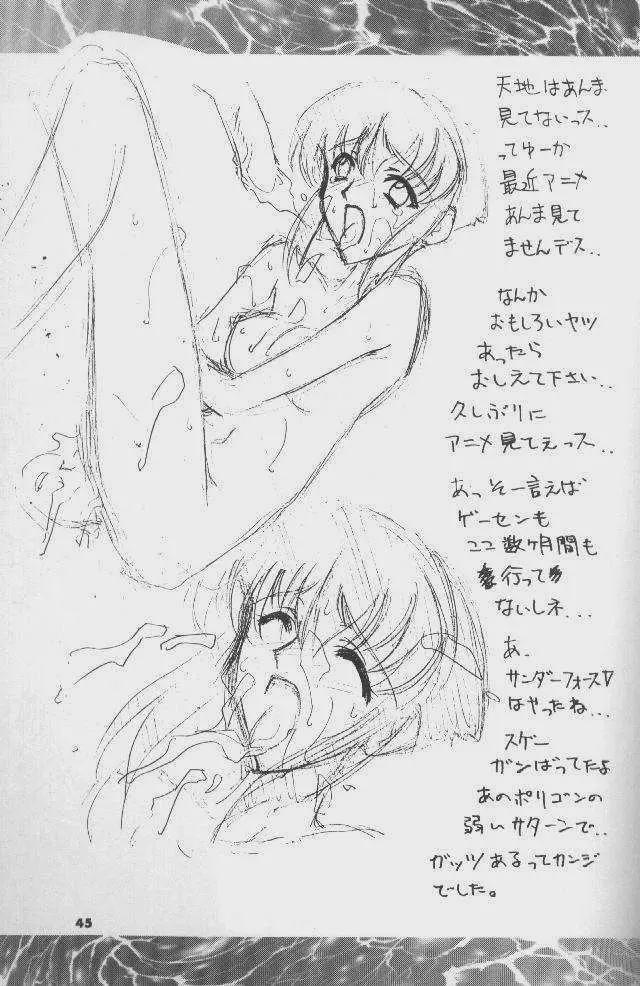 天地はあんま
見てないっス..
ってゆーか
最近アニメ
あんま見て
ませんデス..
なんか
おもしろいヤツ
あったら
おしえて下さい..
久しぶりに
アニメ見てぇっス..
あっそー言えば
ゲーセンも
ココ数ヶ月間も
行って
ないしネ...
あ.
サンダーフォースV
はやったね...
スゲー
ガンばってたよ
あのポリゴンの
弱いサターンで..
ガッツあるってカンジ
でした。
45